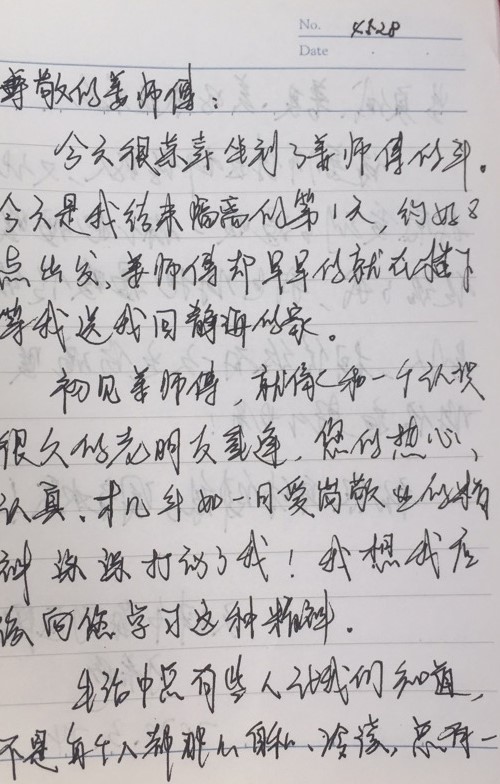 No. 4.5.28
Date
尊敬的姜师傅：
今天很荣幸坐到了姜师傅的车。
今天是我结束隔离的第1天，约好8
点出发，姜师傅却早早的就在楼下
等我送我回静海的家。
初见姜师傅，就像和一个认识
很久的老朋友重逢，您的热心、
认真、十几年如一日爱岗敬业的精
神深深打动了我！我想我应
该向您学习这种精神。
生活中总有些人让我们知道，
不是每个人都那么自私、冷漠，总有一